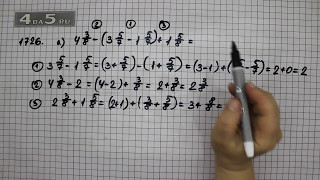 4DA5.RU
② ① ③
1726. а) 4 3/8 - (3 5/7 - 1 5/7) + 1 5/8 =
① 3 5/7 - 1 5/7 = (3 + 5/7) - (1 + 5/7) = (3-1) + (5/7 - 5/7) = 2+0 = 2
② 4 3/8 - 2 = (4-2) + 3/8 = 2 + 3/8 = 2 3/8
③ 2 3/8 + 1 5/8 = (2+1) + (3/8 + 5/8) = 3 + 8/8 =